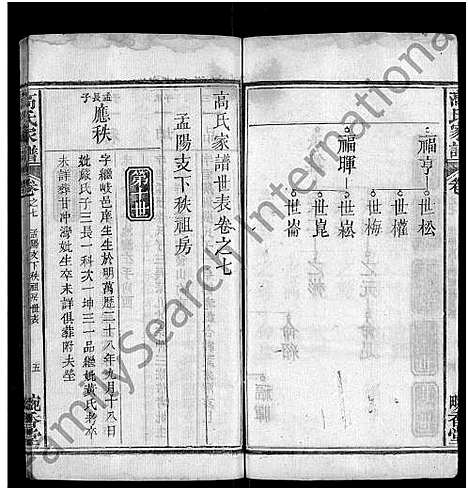 高氏家譜
福亨
世松
世權
世梅
福暉
世崧
世崑
世崙
晚香堂
高氏家譜世表卷之七
孟陽支下秩祖房
第十世
孟長子
應秩
字繼岐邑庠生生於明萬歷二十八年九月十八日
妣嚴氏子三長一科次一坤三一品繼妣黃氏老卒
未詳葬甘冲灣妣生卒未詳俱葬附夫塋
高氏家譜
卷之七
孟陽支下秩祖房世表
五
晚香堂
FamilySearch International